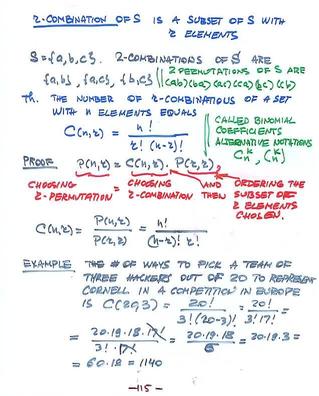 r-COMBINATION OF S IS A SUBSET OF S WITH
r ELEMENTS
S={a,b,c}. 2-COMBINATIONS OF S ARE
{a,b}, {a,c}, {b,c} || 2 PERMUTATIONS OF S ARE
(ab)(ba) (ac)(ca) (bc) (cb)
Th. THE NUMBER OF r-COMBINATIONS OF A SET
WITH n ELEMENTS EQUALS
C(n,r) = n! / r! (n-r)!
CALLED BINOMIAL
COEFFICIENTS
ALTERNATIVE NOTATIONS
PROOF P(n,r) = C(n,r). P(r,r),
CHOOSING r-PERMUTATION = CHOOSING r-COMBINATION AND THEN ORDERING THE SUBSET OF r ELEMENTS CHOSEN.
C(n,r) = P(n,r) / P(r,r) = n! / (n-r)! r!
EXAMPLE THE # OF WAYS TO PICK A TEAM OF
THREE HACKERS OUT OF 20 TO REPRESENT
CORNELL IN A COMPETITION IN EUROPE
IS C(20,3) = 20! / 3!(20-3)! = 20! / 3!17! =
= 20.19.18.17! / 3!.17! = 20.19.18 / 6 = 20.19.3 =
= 60.19 = 1140
-115-